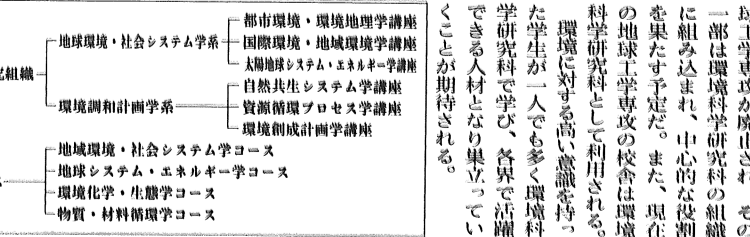 球工学専攻が廃止され、その
一部は環境科学研究科の組織
に組み込まれ、中心的な役割
を果たす予定だ。また、現在
の地球工学専攻の校舎は環境
科学研究科として利用される。
環境に対する高い意識を持っ
た学生が一人でも多く環境科
学研究科で学び、各界で活躍
できる人材となり巣立ってい
くことが期待される。
組織
地球環境・社会システム学系
都市環境・環境地理学講座
国際環境・地域環境学講座
太陽地球システム・エネルギー学講座
環境調和計画学系
自然共生システム学講座
資源循環プロセス学講座
環境創成計画学講座
地域環境・社会システム学コース
地球システム・エネルギー学コース
環境化学・生態学コース
物質・材料循環学コース